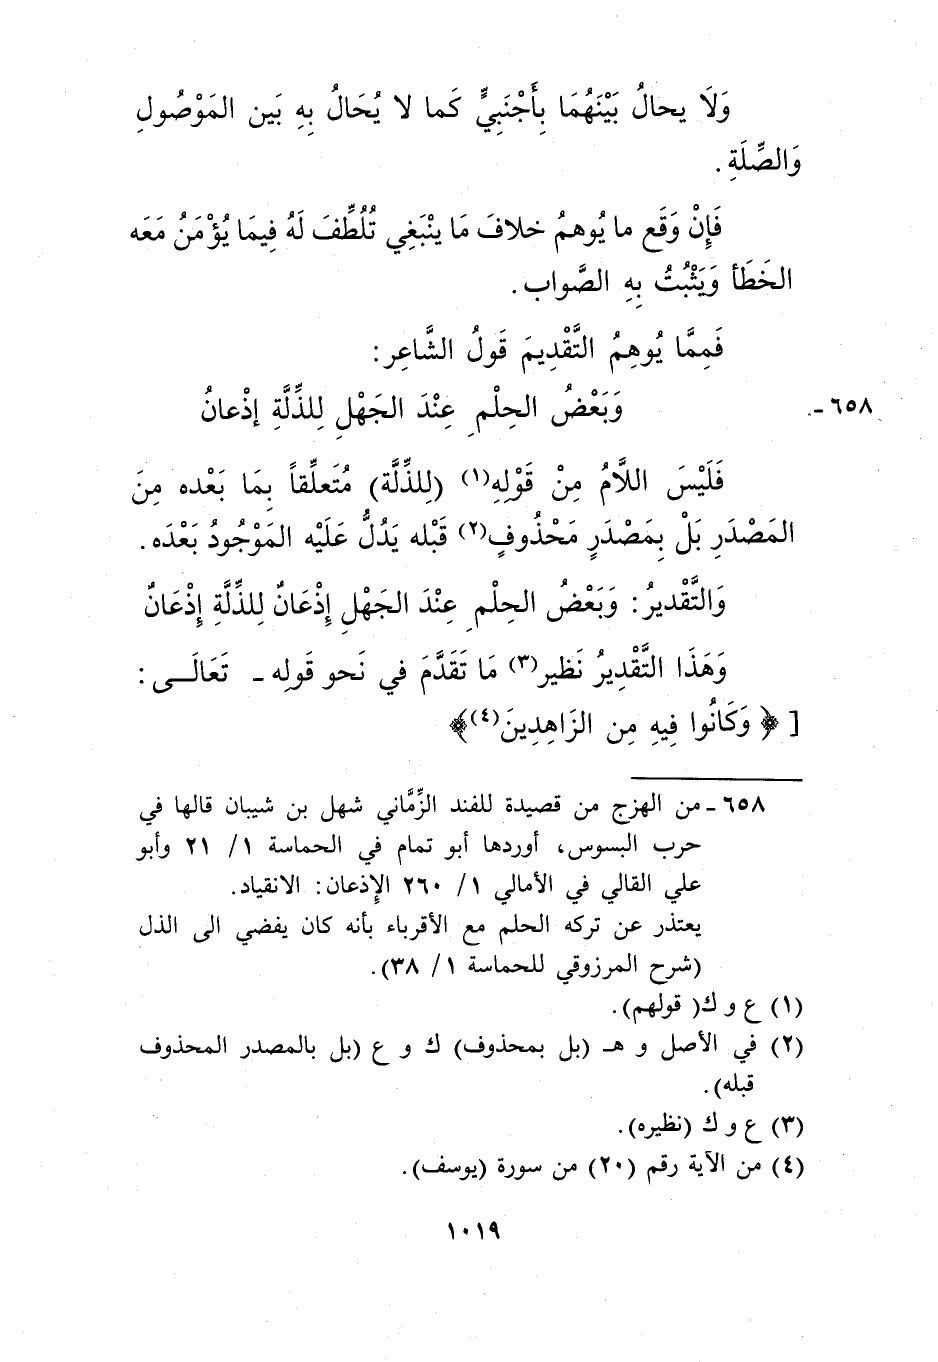 وَلَا يحالُ بَيْنَهُمَا بِأَجْنَبِيٍّ كَما لا يُحَالُ بِهِ بَين المَوْصُولِ
وَالصِّلَةِ .
فَإِنْ وَقَع ما يُوهمُ خلافَ مَا ينْبَغِي تُلُطِّفَ لَهُ فِيمَا يُؤْمَنُ مَعَه
الخَطَأ وَيَثْبُتُ بِهِ الصَّواب .
فَمِمَّا يُوهِمُ التَّقْدِيمَ قَولُ الشَّاعِر :
٦٥٨ - وَبَعْضُ الحِلْمِ عِنْدَ الجَهْلِ لِلذِّلَّةِ إذْعانُ
فَلَيْسَ اللَّامُ مِنْ قَوْلِهِ(١) (لِلذِّلَّة) مُتَعلِّقاً بِمَا بَعْده مِنَ
المَصْدَرِ بَلْ بِمَصْدَرٍ مَحْذُوفٍ(٢) قَبْله يَدُلُّ عَلَيْه المَوْجُودُ بَعْدَه .
وَالتَّقْديرُ : وَبَعْضُ الحِلْمِ عِنْدَ الجَهْلِ إِذْعَانٌ لِلذِّلَّةِ إِذْعَانٌ
وَهَذَا التَّقْدِيرُ نَظير(٣) مَا تَقَدَّمَ في نَحو قَولِه - تَعَالَـى :
[ ﴿ وَكَانُوا فِيهِ مِن الزَاهِدِينَ(٤)﴾
٦٥٨ - من الهزج من قصيدة للفند الزِّمَّاني شهل بن شيبان قالها في
حرب البسوس، أوردها أبو تمام في الحماسة ١ / ٢١ وأبو
علي القالي في الأمالي ١ / ٢٦٠ الإِذعان : الانقياد .
يعتذر عن تركه الحلم مع الأقرباء بأنه كان يفضي الى الذل
(شرح المرزوقي للحماسة ١ / ٣٨) .
(١) ع و ك( قولهم) .
(٢) في الأصل و هـ (بل بمحذوف) ك و ع (بل بالمصدر المحذوف
قبله) .
(٣) ع و ك (نظيره) .
(٤) من الآية رقم (٢٠) من سورة (يوسف) .
١٠١٩